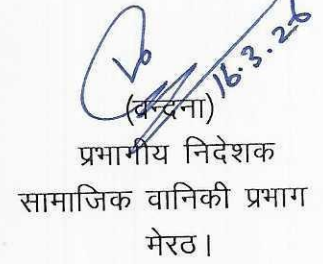 16.3.26
(वन्दना)
प्रभागीय निदेशक
सामाजिक वानिकी प्रभाग
मेरठ।